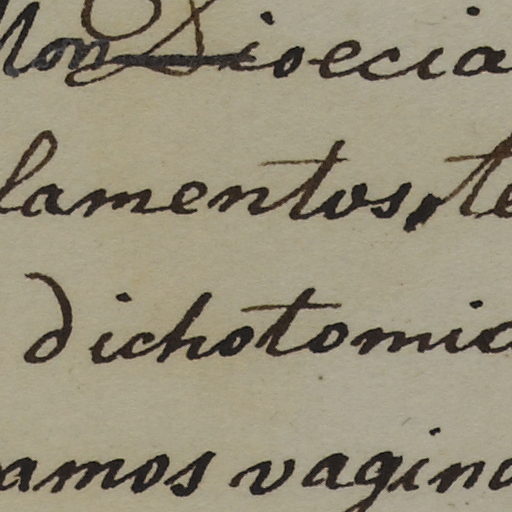 Mon Dioecia
lamentos, te
dichotomic
amos vagina